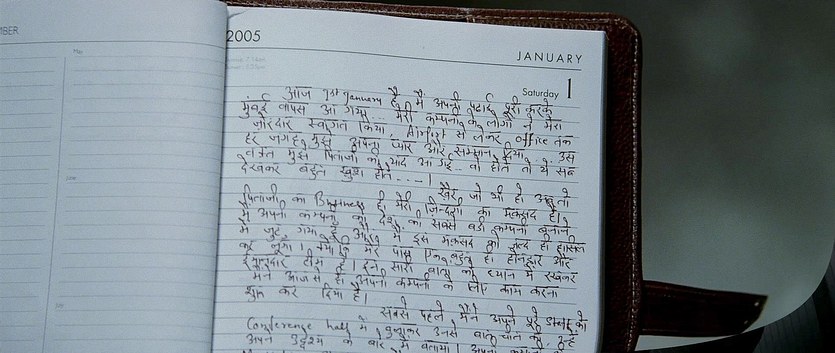 BER
2005
JANUARY
Saturday 1
आज 1st January है, मैं अपनी पढाई पूरी करके
मुंबई वापस आ गया... मेरी कम्पनी के लोगों ने मेरा
जोरदार स्वागत किया, Airport से लेकर office तक
हर जगह मुझे अपना प्यार और सम्मान दिया, उस
वक्त मुझे पिताजी की याद आ गई - वो होते तो ये सब
देखकर बहुत खुश होते ---।
खैर जो भी हो अब तो
पिताजी का Business ही मेरी ज़िन्दगी का मकसद है।
मैं अपनी कम्पनी को देश की सबसे बड़ी कम्पनी बनाने
में जुट गया हूँ और मैं इस मकसद को जल्द ही हासिल
कर लूंगा। क्योंकि मेरे पास एक बहुत ही होनहार और
ईमानदार टीम है। इन सारी बातों को ध्यान में रखकर
मैंने आज से ही अपनी कम्पनी के लिए काम करना
शुरू कर दिया है।
सबसे पहले मैंने अपने पूरे स्टाफ को
Conference hall में बुलाकर उनसे बातचीत की, उन्हें
अपने उद्देश्य के बारे में बताया। अपनी